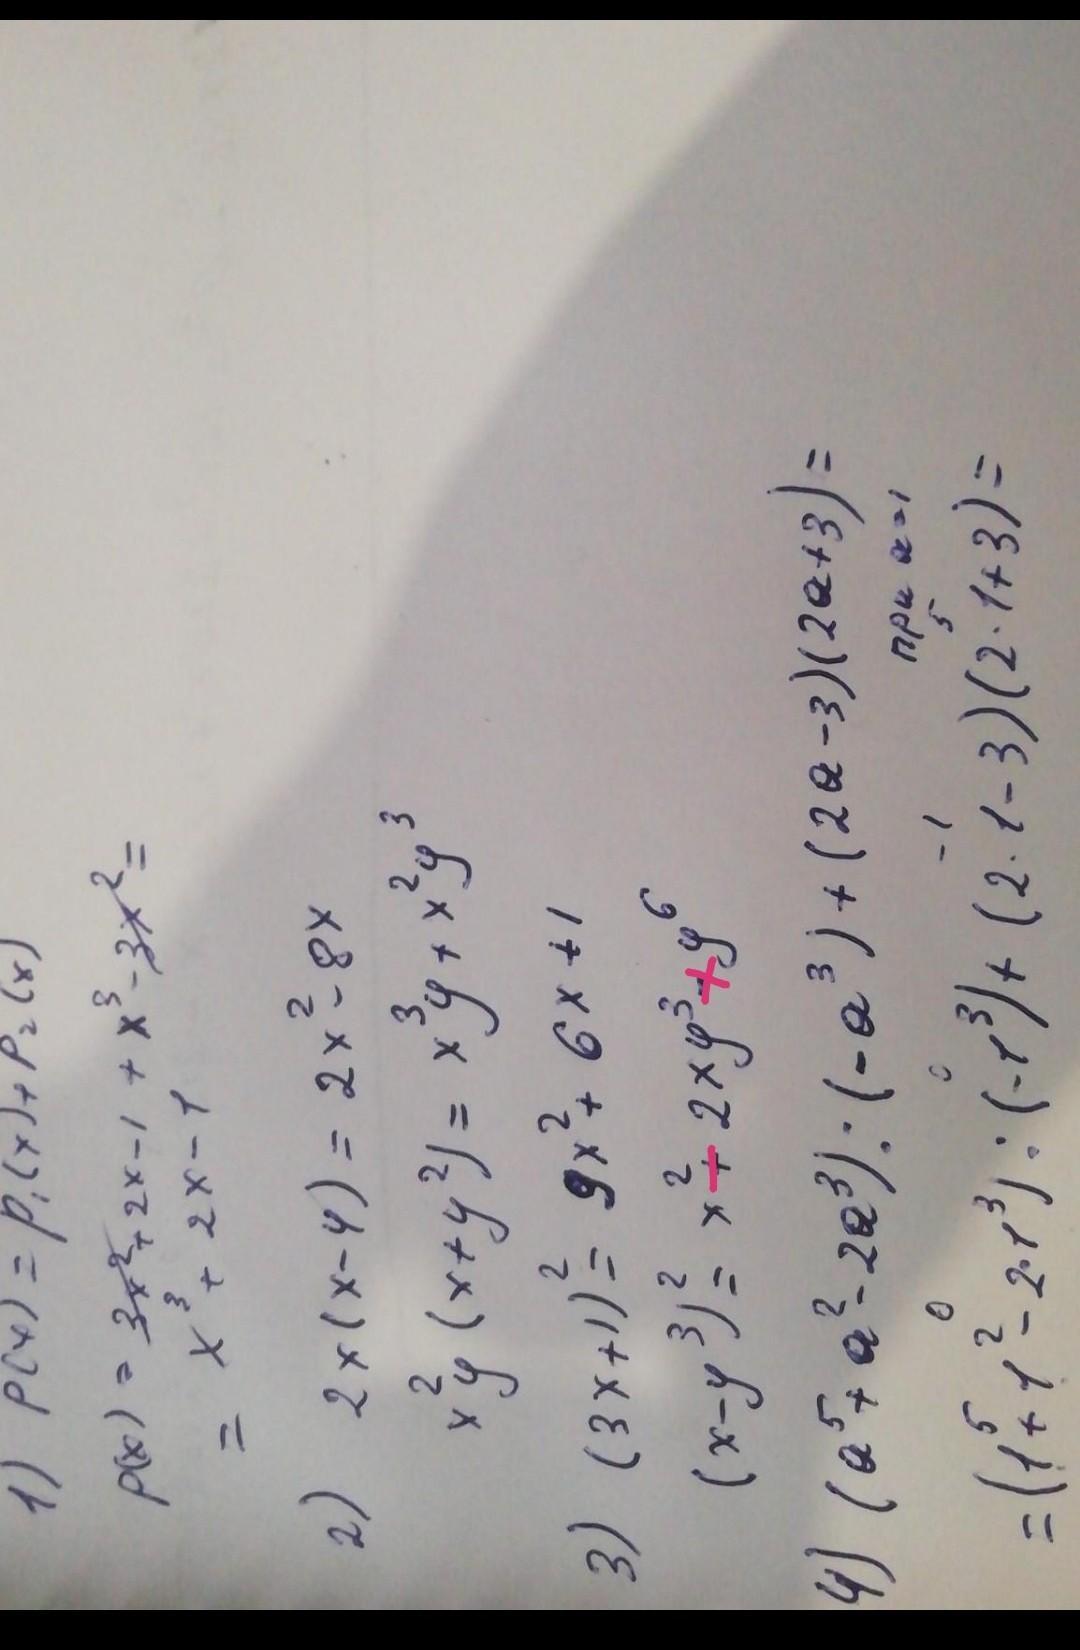 1) P(x) = P₁(x) + P₂(x)
P(x) = 3x² + 2x - 1 + x³ - 3x² =
= x³ + 2x - 1
2) 2x(x-4) = 2x² - 8x
x²y(x+y²) = x³y + x²y³
3) (3x+1)² = 9x² + 6x + 1
(x-y³)² = x² - 2xy³ + y⁶
4) (a⁵ + a² - 2a³) : (-a³) + (2a-3)(2a+3) =
при a=1
0 0 -1 5
= (1⁵ + 1² - 2·1³) : (-1³) + (2·1-3)(2·1+3) =